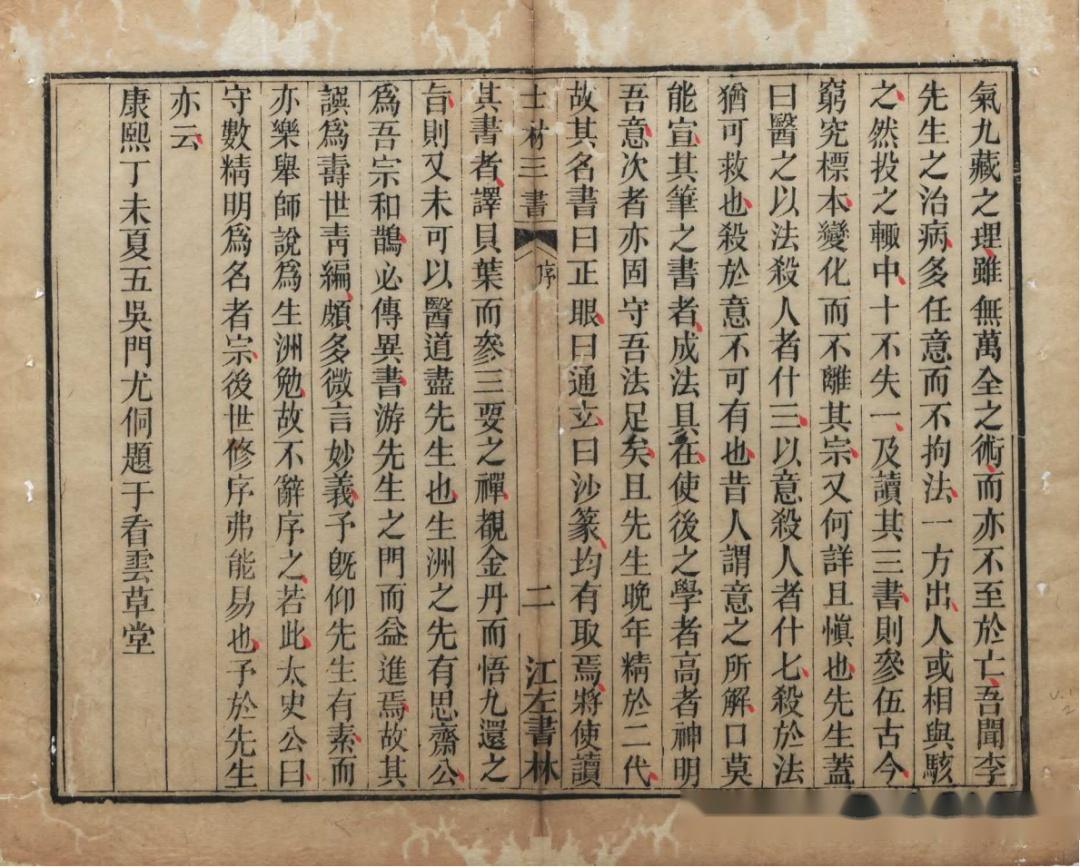 氣九藏之理雖無萬全之術而亦不至於亡吾聞李
先生之治病多任意而不拘法一方出人或相與駭
之然投之輙中十不失一及讀其三書則參伍古今
窮究標本變化而不離其宗又何詳且慎也先生蓋
曰醫之以法殺人者什三以意殺人者什七殺於法
猶可救也殺於意不可有也昔人謂意之所解口莫
能宣其筆之書者成法具在使後之學者高者神明
吾意次者亦固守吾法足矣且先生晚年精於二代
故其名書曰正眼曰通玄曰沙篆均有取焉將使讀
士材三書 序 二 江左書林
其書者譯貝葉而參三要之禪覩金丹而悟九還之
旨則又未可以醫道盡先生也生洲之先有思齋公
為吾宗和鵲必傳異書游先生之門而益進焉故其
譔為壽世靑編頗多微言妙義予旣仰先生有素而
亦樂舉師說為生洲勉故不辭序之若此太史公曰
守數精明為名者宗後世修序弗能易也予於先生
亦云
康熙丁未夏五吳門尤侗題于看雲草堂